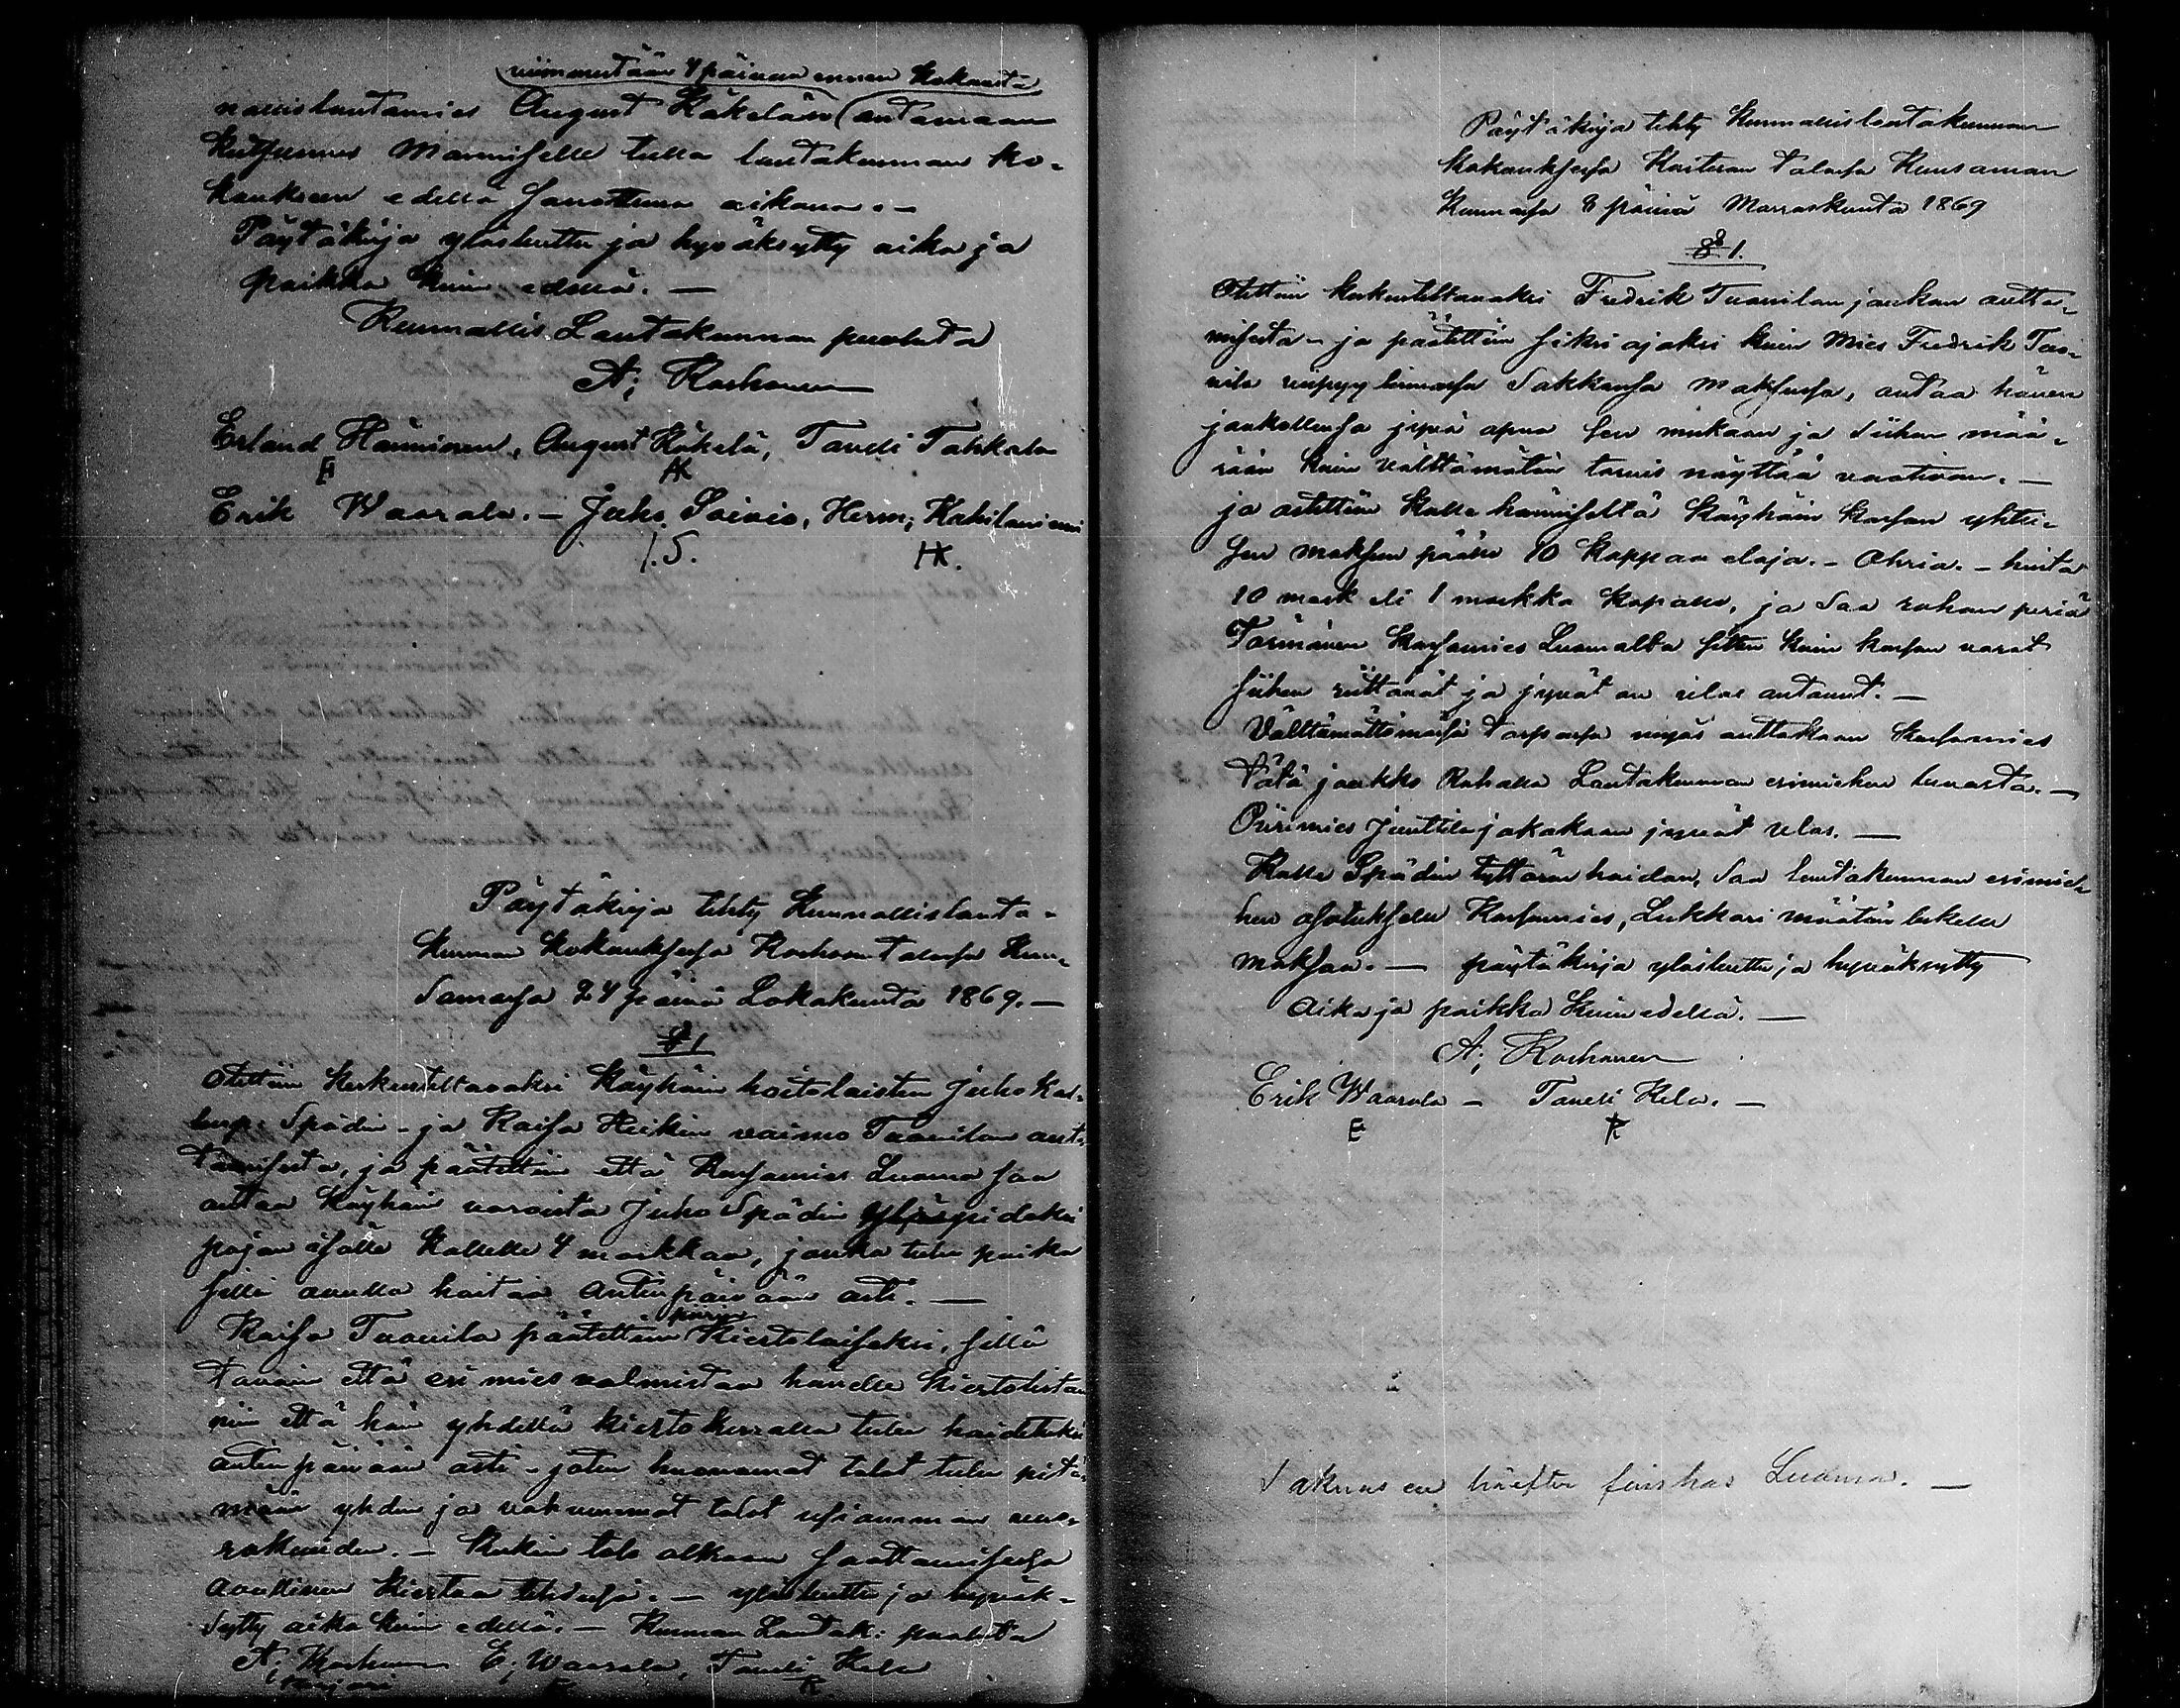 viimmestään 4 päivää ennen kokousta
nallislautamies August Käkelän antamaan
kutsumus Mannifelle tulla lautakunnan ko-
koukseen edellä sanottuna aikana. —
Päytäkirja ylösluettu ja hyväksytty aika ja
paikka kuin edellä. —
Kunnallis Lautakunnan puolesta
A; Korhonen
Erland Hänninen, August Käkelä, Taneli Tahkala
AK
Erik Waarala. — Juho Soivio, Herm; Kahilaniemi
I.S. HK.
Päytäkirja tehty Kunnallislauta-
kunnan Kokouksesa Korhosen talosa Kuu-
samosa 24 päivä Lokakuuta 1869. —
§ 1
Otettiin keskusteltavaksi Käyhäin hoitolaisten Juho Kal-
linp. Spädin — ja Kaisa Heikin vaimo Tuovilan aut-
tamisesta, ja päätettiin että Kassamies Luoma saa
auttaa käyhäin varoista Juho Spädin ylöspidoksi
pojan isälle Kallelle 4 markkaa, jonka tulee poika
sillä avulla hoitaa Antinpäivään asti. —
piirin
Kaisa Tuovila päätettiin Kiertolaiseksi, sillä
tavain että esimies valmistaa hänelle kiertolistan
niin että hän yhdellä kiertokerralla tulee hoidetuksi
antinpäivään asti — joten huonomat talot tulee pitä-
mään yhden ja vahvemmat talot usiamman vuo-
rokauden. — Kukin talo alkaan saattamisesa
avullinen kiertoa tehdesä. — ylösluettu ja hyväk-
sytty aika kuin edellä. — Kunnan Lautak: puolesta
A; Korhonen E; Waarala, Taneli Kela
K
Päytäkirja tehty Kunnallislautakunnan
kokouksesa Korhosen Talosa Kuusamon
Kunnasa 8 päivä Marraskuuta 1869
§ 1.
Otettiin keskusteltavaksi Fredrik Tuovilan joukon autta-
misesta — ja päätettiin siksi ajaksi kuin Mies Fredrik Tuo-
vila viipyy linnasa Sakkonsa maksusa, antaa hänen
joukollensa jyvä apua sen mukaan ja siihen mää-
rään kuin välttämätöin tarvis näyttää vaativan. —
ja ostettiin Kalle hänniseltä Käyhäin kassan yhtei-
sen maksun päälle 10 kappaa eloja. — Ohria. — hinta
10 mark eli 1 markka kapalle, ja saa rahan periä
Törmänen Kassamies Luomalta sitten kuin kassan varat
siihen riittävät ja jyvät on ulos antanut. —
Välttämättömäsä tarpeesa myös auttakaan Kassamies
Tätä joukko Rahalla Lautakunnan esimiehen luvasta. —
Piirimies Junttila jakakaan jyvät ulos. —
Kalle Spädin tyttären hoidon, saa lautakunnan esimie-
hen osotuksella Kassamies, Lukkari määtän leskelle
maksaa. — päytäkirja ylösluettu ja hyväksytty
Aika ja paikka kuin edellä. —
A; Korhonen
Erik Waarala — Taneli Kela. —
K